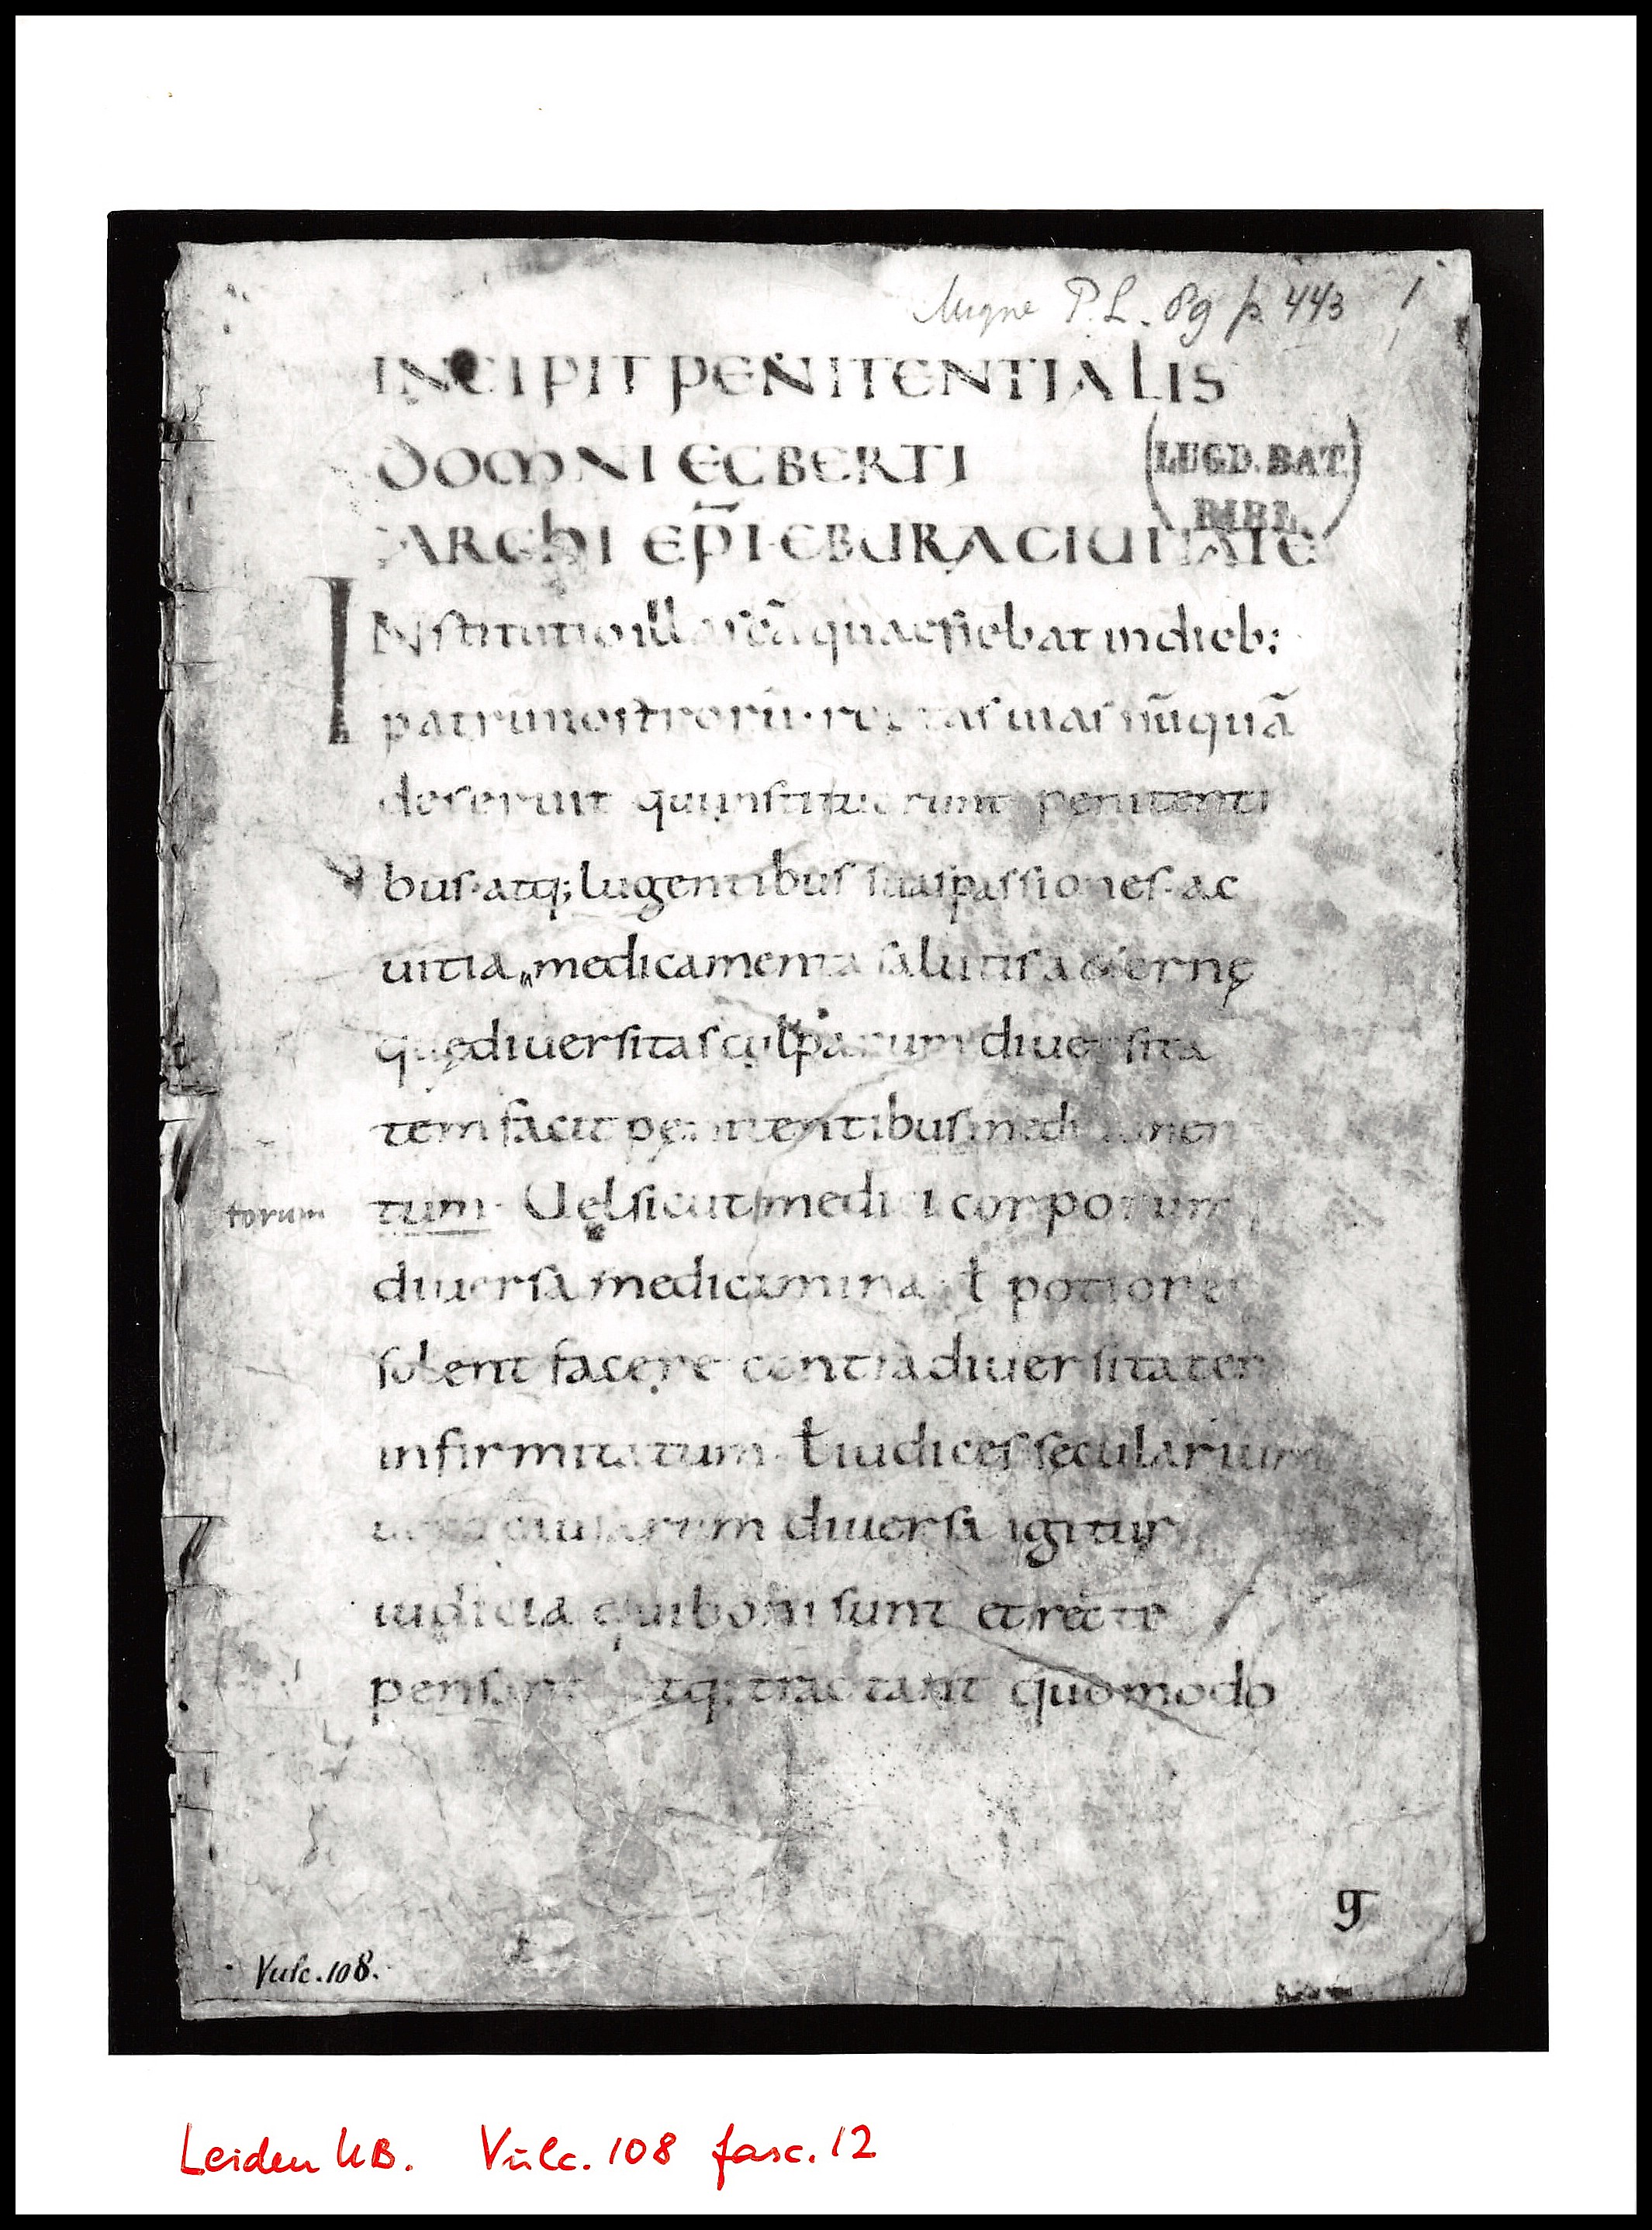 Migne P.L. 89 p. 443 1
INCIPIT PENITENTIALIS
DOMNI ECBERTI
LUGD. BAT.
BIBL.
ARCHI EP̄I·EBURACIUITATE
INstitutio illa sc̄a quae fiebat in dieb;
patrum nostrorū· rectas uias nūquā
deseruit qui instituerunt penitenti
bus· atq; lugentibus suas passiones· ac
uitia medicamenta salutis aeternę
quę diuersitas culparum diuersita
tem facit penitentibus medicamen
torum
tum· Uel sicut medici corporum
diuersa medicamina ł potiones
solent facere contra diuersitatem
infirmitatum· ł iudices secularium
diuersa igitur
iudicia qui boni sunt et recte
pensant atq; tractant quomodo
g
Vulc. 108.
Leiden UB. Vulc. 108 fasc. 12